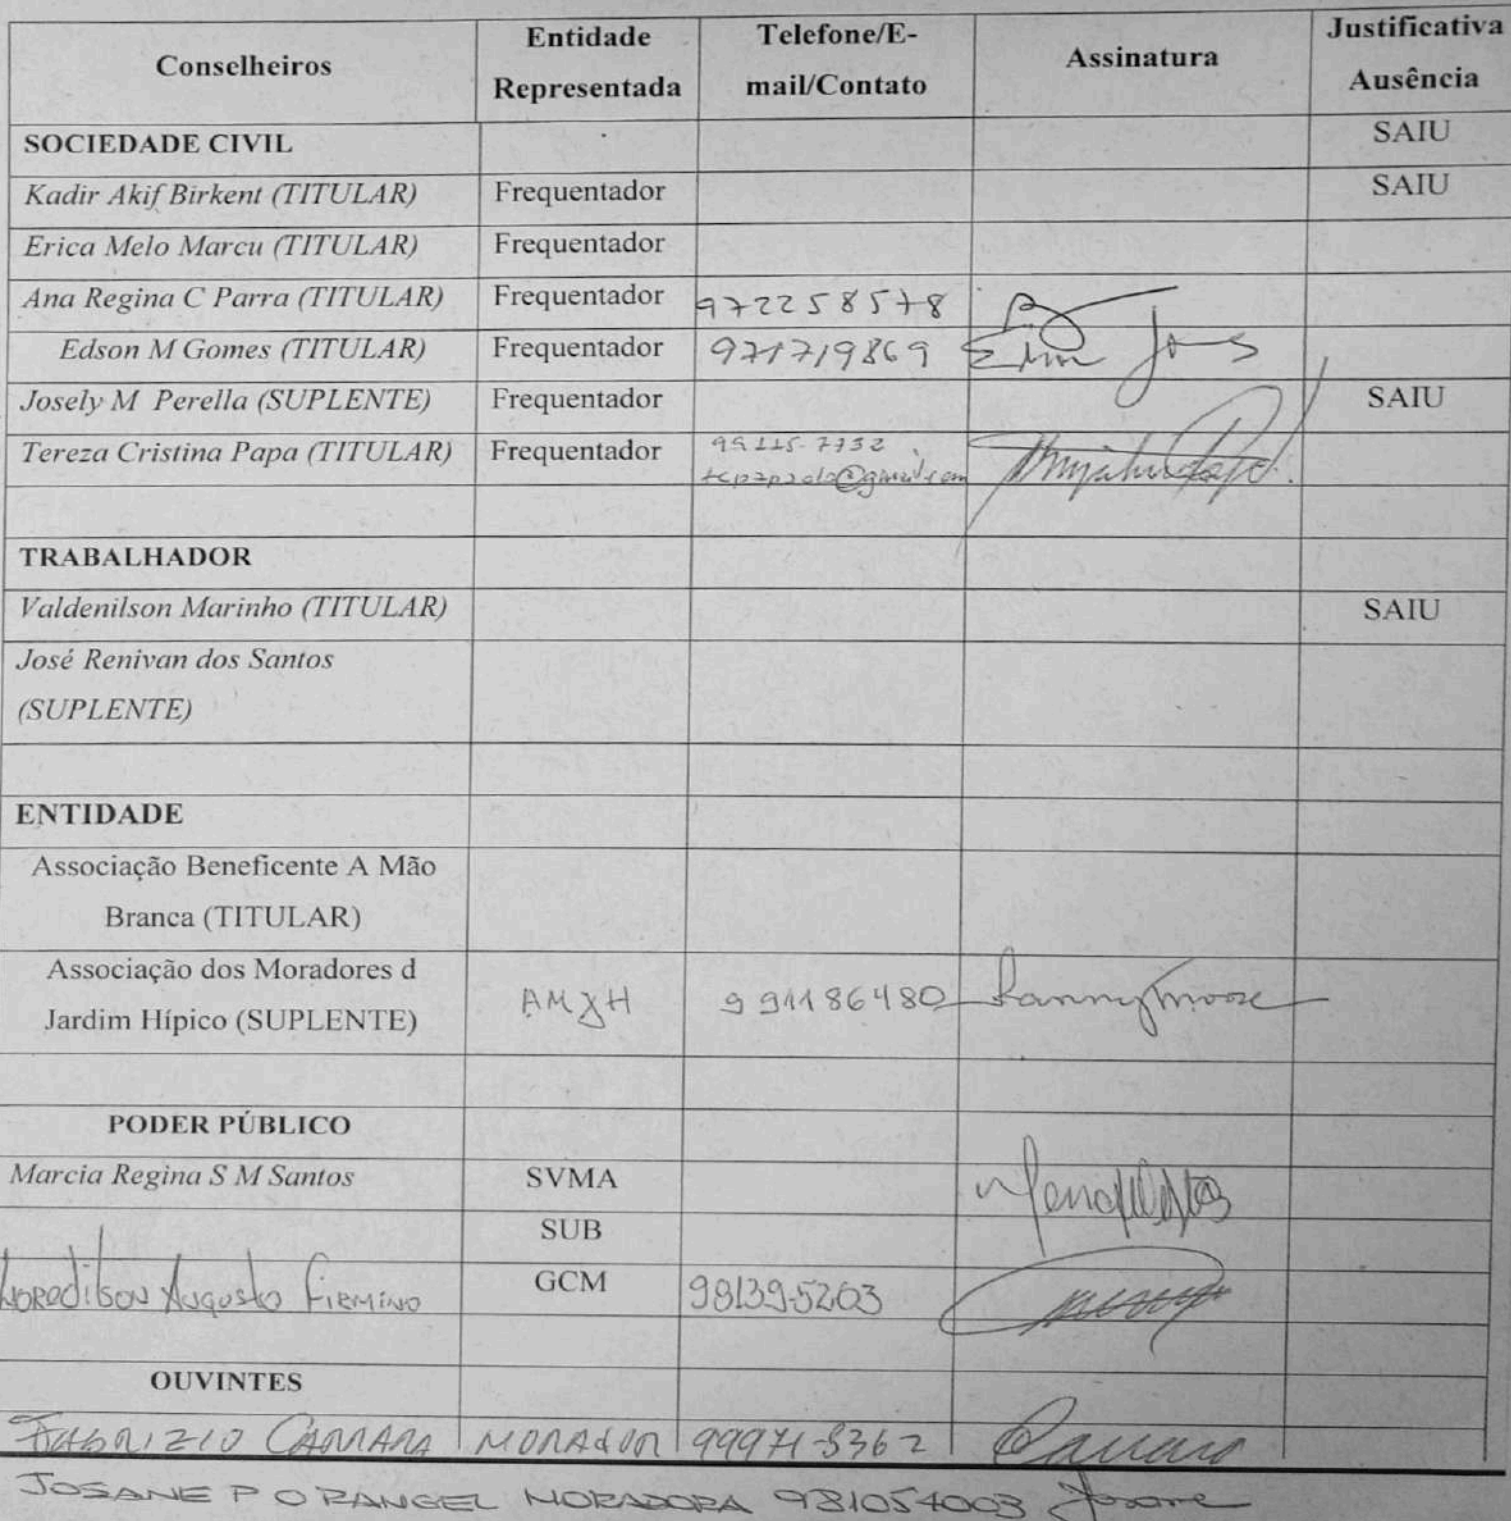 Conselheiros Entidade Representada Telefone/E-mail/Contato Assinatura Justificativa Ausência
SOCIEDADE CIVIL SAIU
Kadir Akif Birkent (TITULAR) Frequentador SAIU
Erica Melo Marcu (TITULAR) Frequentador
Ana Regina C Parra (TITULAR) Frequentador 972258578
Edson M Gomes (TITULAR) Frequentador 971719869
Josely M Perella (SUPLENTE) Frequentador SAIU
Tereza Cristina Papa (TITULAR) Frequentador 99115-7732
TRABALHADOR
Valdenilson Marinho (TITULAR) SAIU
José Renivan dos Santos
(SUPLENTE)
ENTIDADE
Associação Beneficente A Mão
Branca (TITULAR)
Associação dos Moradores d
Jardim Hípico (SUPLENTE) AMJH 991186480
PODER PÚBLICO
Marcia Regina S M Santos SVMA
SUB
Augusto Firmino GCM 98139-5203
OUVINTES
FABRIZIO CAMARA MORADOR 99971-8362
JOSANE P O RANGEL MORADORA 981054003 Josane